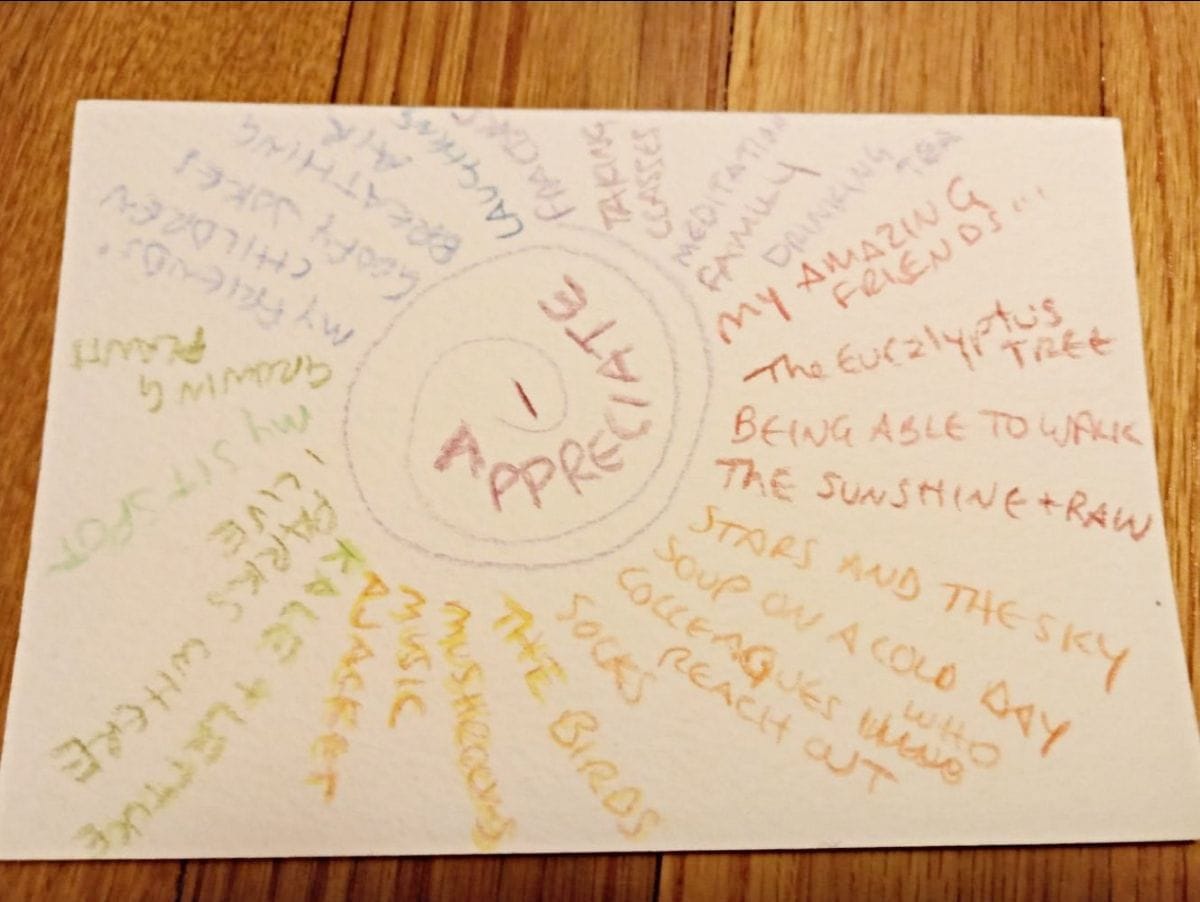 I
APPRECIATE
MY AMAZING
FRIENDS...
The Eucalyptus
TREE
BEING ABLE TO WALK
THE SUNSHINE + RAIN
STARS AND THE SKY
SOUP ON A COLD DAY
COLLEAGUES WHO
REACH OUT
SOCKS
THE BIRDS
MUSHROOMS
MUSIC
A JACKET
KALE + LETTUCE
PARKS WHERE
I LIVE
MY SIT SPOT
GROWING
PLANTS
MY FRIENDS'
CHILDREN
GOOFY JOKES
BREATHING
AIR
LAUGHING
TAKING
CLASSES
MEDITATING
FAMILY
DRINKING
TEA